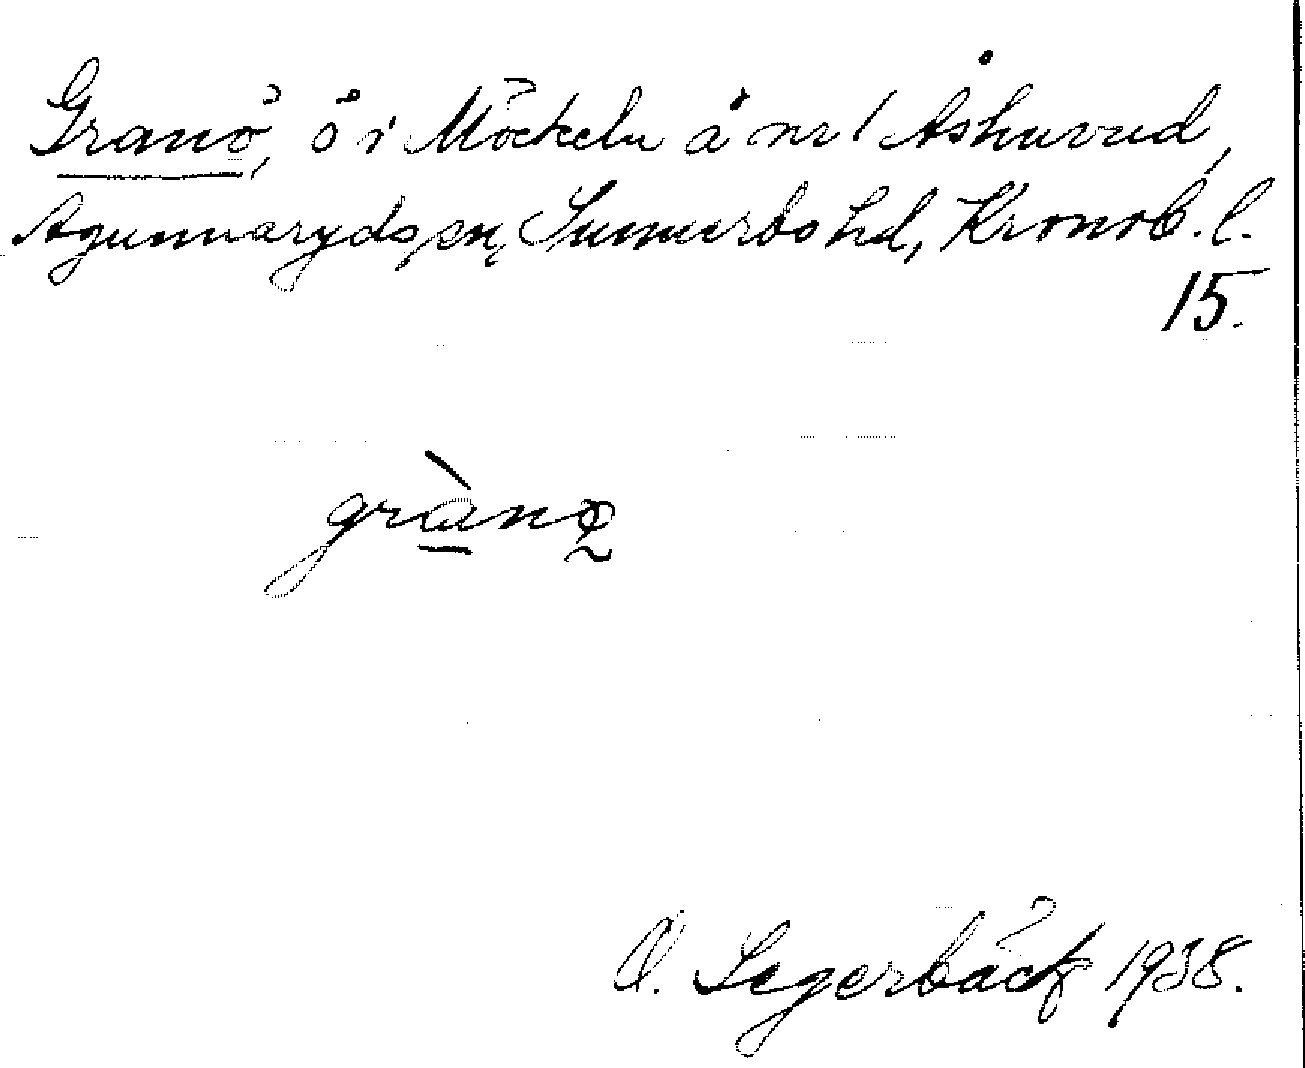 Granö, ö i Möckeln å nr 1 Åshuvud,
Agunnaryds sn, Sunnerbo hd, Kronob. l.
15.
grànö
O. Segerbäck 1938.